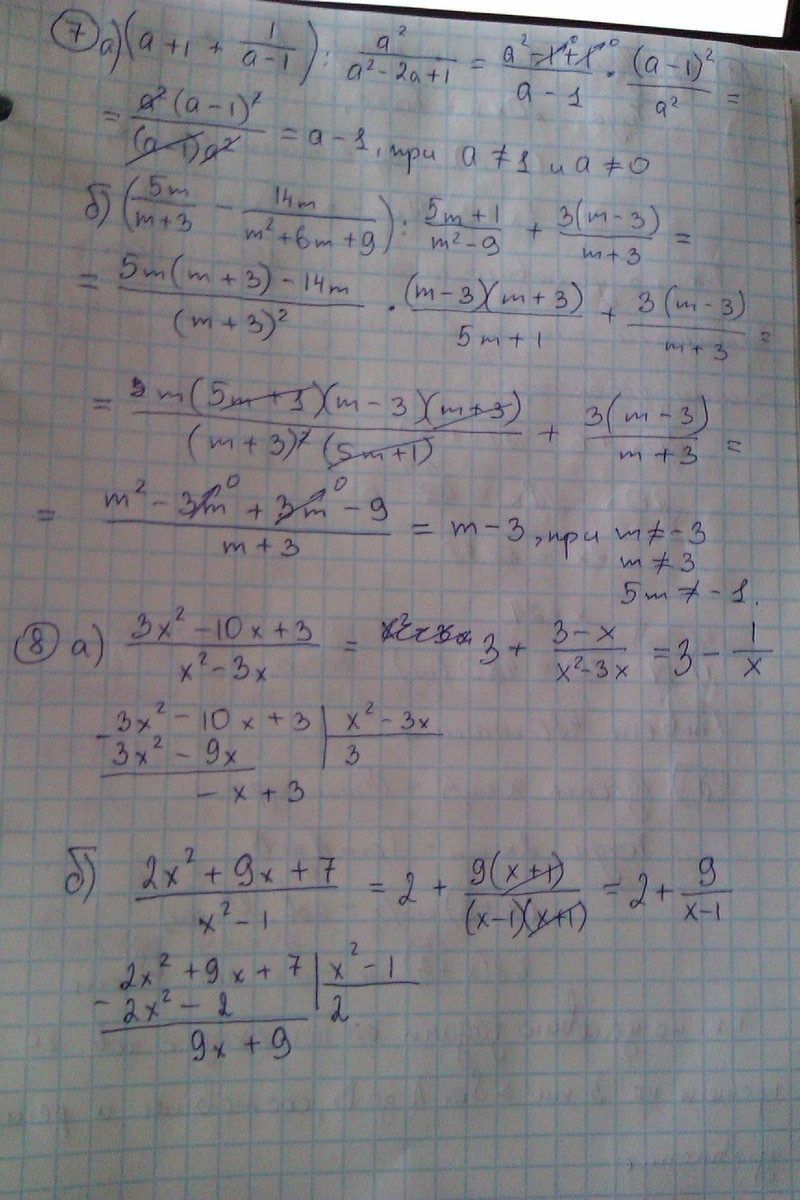 7 а) (a + 1 + 1/(a-1)) : a²/(a² - 2a + 1) = (a² - 1 + 1)/(a - 1) · (a-1)²/a² =
= a²(a-1)²/((a-1)a²) = a - 1, при a ≠ 1 и a ≠ 0
б) (5m/(m+3) - 14m/(m²+6m+9)) : (5m+1)/(m²-9) + 3(m-3)/(m+3) =
= (5m(m+3) - 14m)/(m+3)² · (m-3)(m+3)/(5m+1) + 3(m-3)/(m+3) =
= m(5m+1)(m-3)(m+3)/((m+3)²(5m+1)) + 3(m-3)/(m+3) =
= (m² - 3m⁰ + 3m⁰ - 9)/(m+3) = m - 3, при m ≠ -3
m ≠ 3
5m ≠ -1.
8 а) (3x² - 10x + 3)/(x² - 3x) = 3 + (3-x)/(x²-3x) = 3 - 1/x
- 3x² - 10x + 3 | x² - 3x
3x² - 9x | 3
- x + 3
б) (2x² + 9x + 7)/(x² - 1) = 2 + 9(x+1)/((x-1)(x+1)) = 2 + 9/(x-1)
- 2x² + 9x + 7 | x² - 1
2x² - 2 | 2
9x + 9